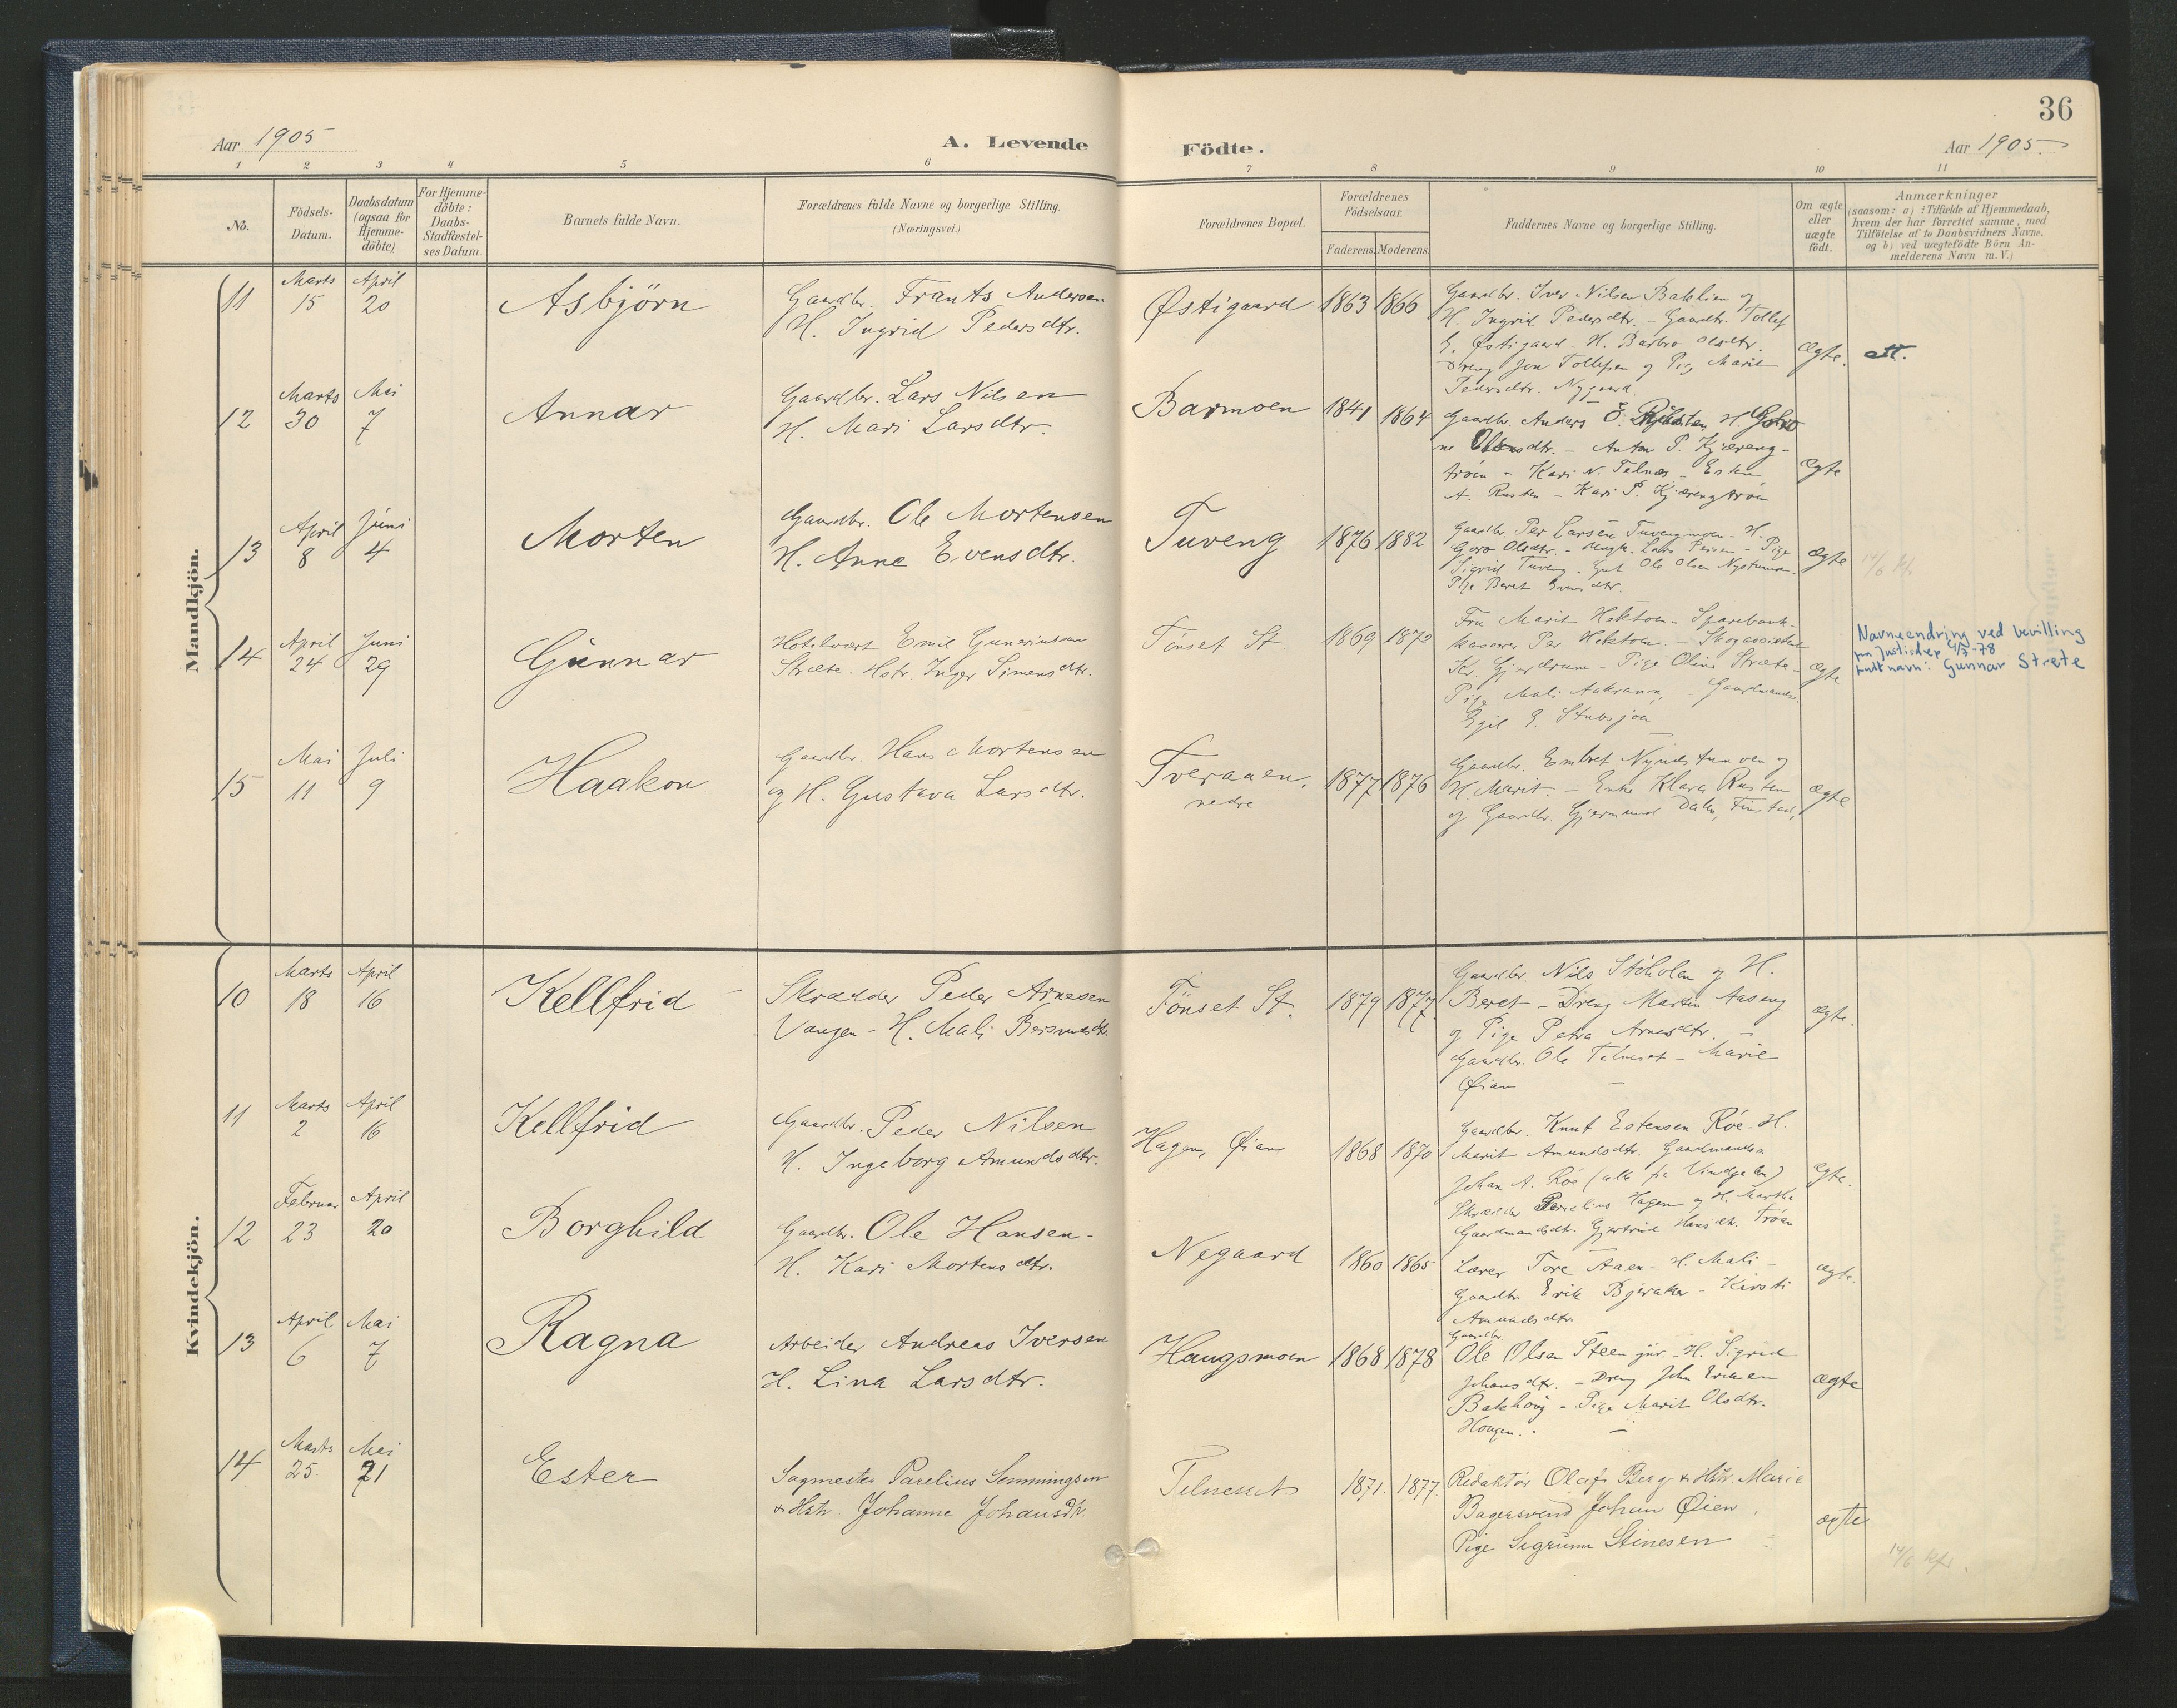 36
Aar 1905
A. Levende Födte.
Aar 1905.
1 2 3 4 5 6 7 8 9 10 11
No.
Födsels-
Datum.
Daabsdatum
(ogsaa for
Hjemme-
döbte)
For Hjemme-
döbte:
Daabs-
Stadfæstel-
ses Datum.
Barnets fulde Navn.
Forældrenes fulde Navne og borgerlige Stilling.
(Næringsvei.)
Forældrenes Bopæl.
Forældrenes
Födselsaar.
Faderens. Moderens.
Faddernes Navne og borgerlige Stilling.
Om ægte
eller
uægte
født.
Anmærkninger
(saasom: a) i Tilfælde af Hjemmedaab,
hvem der har forrettet samme, med
Tilföielse af to Daabsvidners Navne.
og b) ved uægtefödte Börn An-
melderens Navn m. V.)
Mandkjön.
11 Marts 15 April 20 Asbjörn
Gaardbr. Frants Andersen
H. Ingrid Pedersdtr.
Østigaard 1863 1866
Gaardbr. Iver Nilsen Baklien og
H. Ingrid Pedersdtr. - Gaardbr. Tollef
E. Østigaard - H. Barbro Olsdtr.
Dreng Jon Tollefsen og Pig. Marit
Pedersdtr. Nygaard.
Ægte. att.
12 Marts 30 Mai 7 Annar
Gaardbr. Lars Nilsen
H. Mari Larsdtr.
Barmoen 1841 1864
Gaardbr. Anders E. H.
Olsdtr. - Anton P. Kjæreng-
tröen - Kari N. Telnæs - Esten
A. Rusten - Kari P. Kjærengtröen
Ægte
13 April 8 Juni 4 Morten
Gaardbr. Ole Mortensen
H. Anne Evensdtr.
Tuveng 1876 1882
Gaardbr. Per Larsen Tuvengmoen - H.
Goro Olsdtr. - Ungk. Lars Persen - Pige
Sigrid Tuveng - Gut Ole Olsen Nystumoen
Pige Beret Evensdtr.
Ægte 14/6 kfr.
14 April 24 Juni 29 Gunnar
Hotelvært Emil Guneriussen
Stræte. Hstr. Inger Simensdtr.
Tönset St. 1869 1872
Fru Marit Hektoen - Sparebank-
kaserer Per Hektoen. - Skogassistent
Kr. Gjerdrum - Pige Oline Stræte -
Pige Mali Aakrann, - Gaardmands.
Egil E. Stubsjoen
Ægte
Navneendring ved bevilling
fra Justisdep. 4/7-78
fullt navn: Gunnar Strete
15 Mai 11 Juli 9 Haakon
Gaardbr. Hans Mortensen
og H. Gustava Larsdtr.
Tveraaen, 1877 1876
nedre
Gaardbr. Embret Nyndstumoen og
H. Marit. - Enke Klara Rusten
og Gaardbr. Gjermund Dalen, Finstad,
Ægte
Kvindekjön.
10 Marts 18 April 16 Kellfrid
Skrædder Peder Arnesen
Vangen - H. Mali Bersvendsdtr.
Tönset St. 1879 1877
Gaardbr. Nils Stöholen og H.
Beret - Dreng Martin Aaseng
og Pige Petra Arnesdtr. -
Gaardbr. Ole Telneset - Marie
Øian
ægte.
11 Marts 2 April 16 Kellfrid
Gaardbr. Peder Nilsen
H. Ingeborg Amundsdtr.
Hagen, Øian 1868 1870
Gaardbr. Knut Estensen Röe - H.
Marit Amundsdtr. Gaardmands.
Johan A. Röe (alle fra Vingelen)
Skrædder Parelius Hagen og H. Martha
Gaardmandsdt. Gjertrud Hansdtr. Tröen
ægte.
12 Februar 23 April 20 Borghild
Gaardbr. Ole Hansen -
H. Kari Mortensdtr.
Negaard 1860 1865
Lærer Tore Aaen - H. Mali -
Gaardbr. Erik Bjeraker - Kirsti
Amundsdtr.
ægte.
13 April 6 Mai 7 Ragna
Arbeider Andreas Iversen
H. Lina Larsdtr.
Haugsmoen 1868 1878
Gaardbr.
Ole Olsen Steen jnr. - H. Sigrid
Johansdtr. - Dreng John Eriksen
Bakhaug - Pige Marit Olsdtr.
Hougen.
ægte
14 Marts 25. Mai 21 Ester
Sagmester Parelius Semmingsen
& Hstr. Johanne Johansdtr.
Telnesset 1871. 1877.
Redaktör Olaf Berg & Hstr. Marie
Bagersvend Johan Øien,
Pige Sigrunn Stinesen
ægte
14/6 kfr.